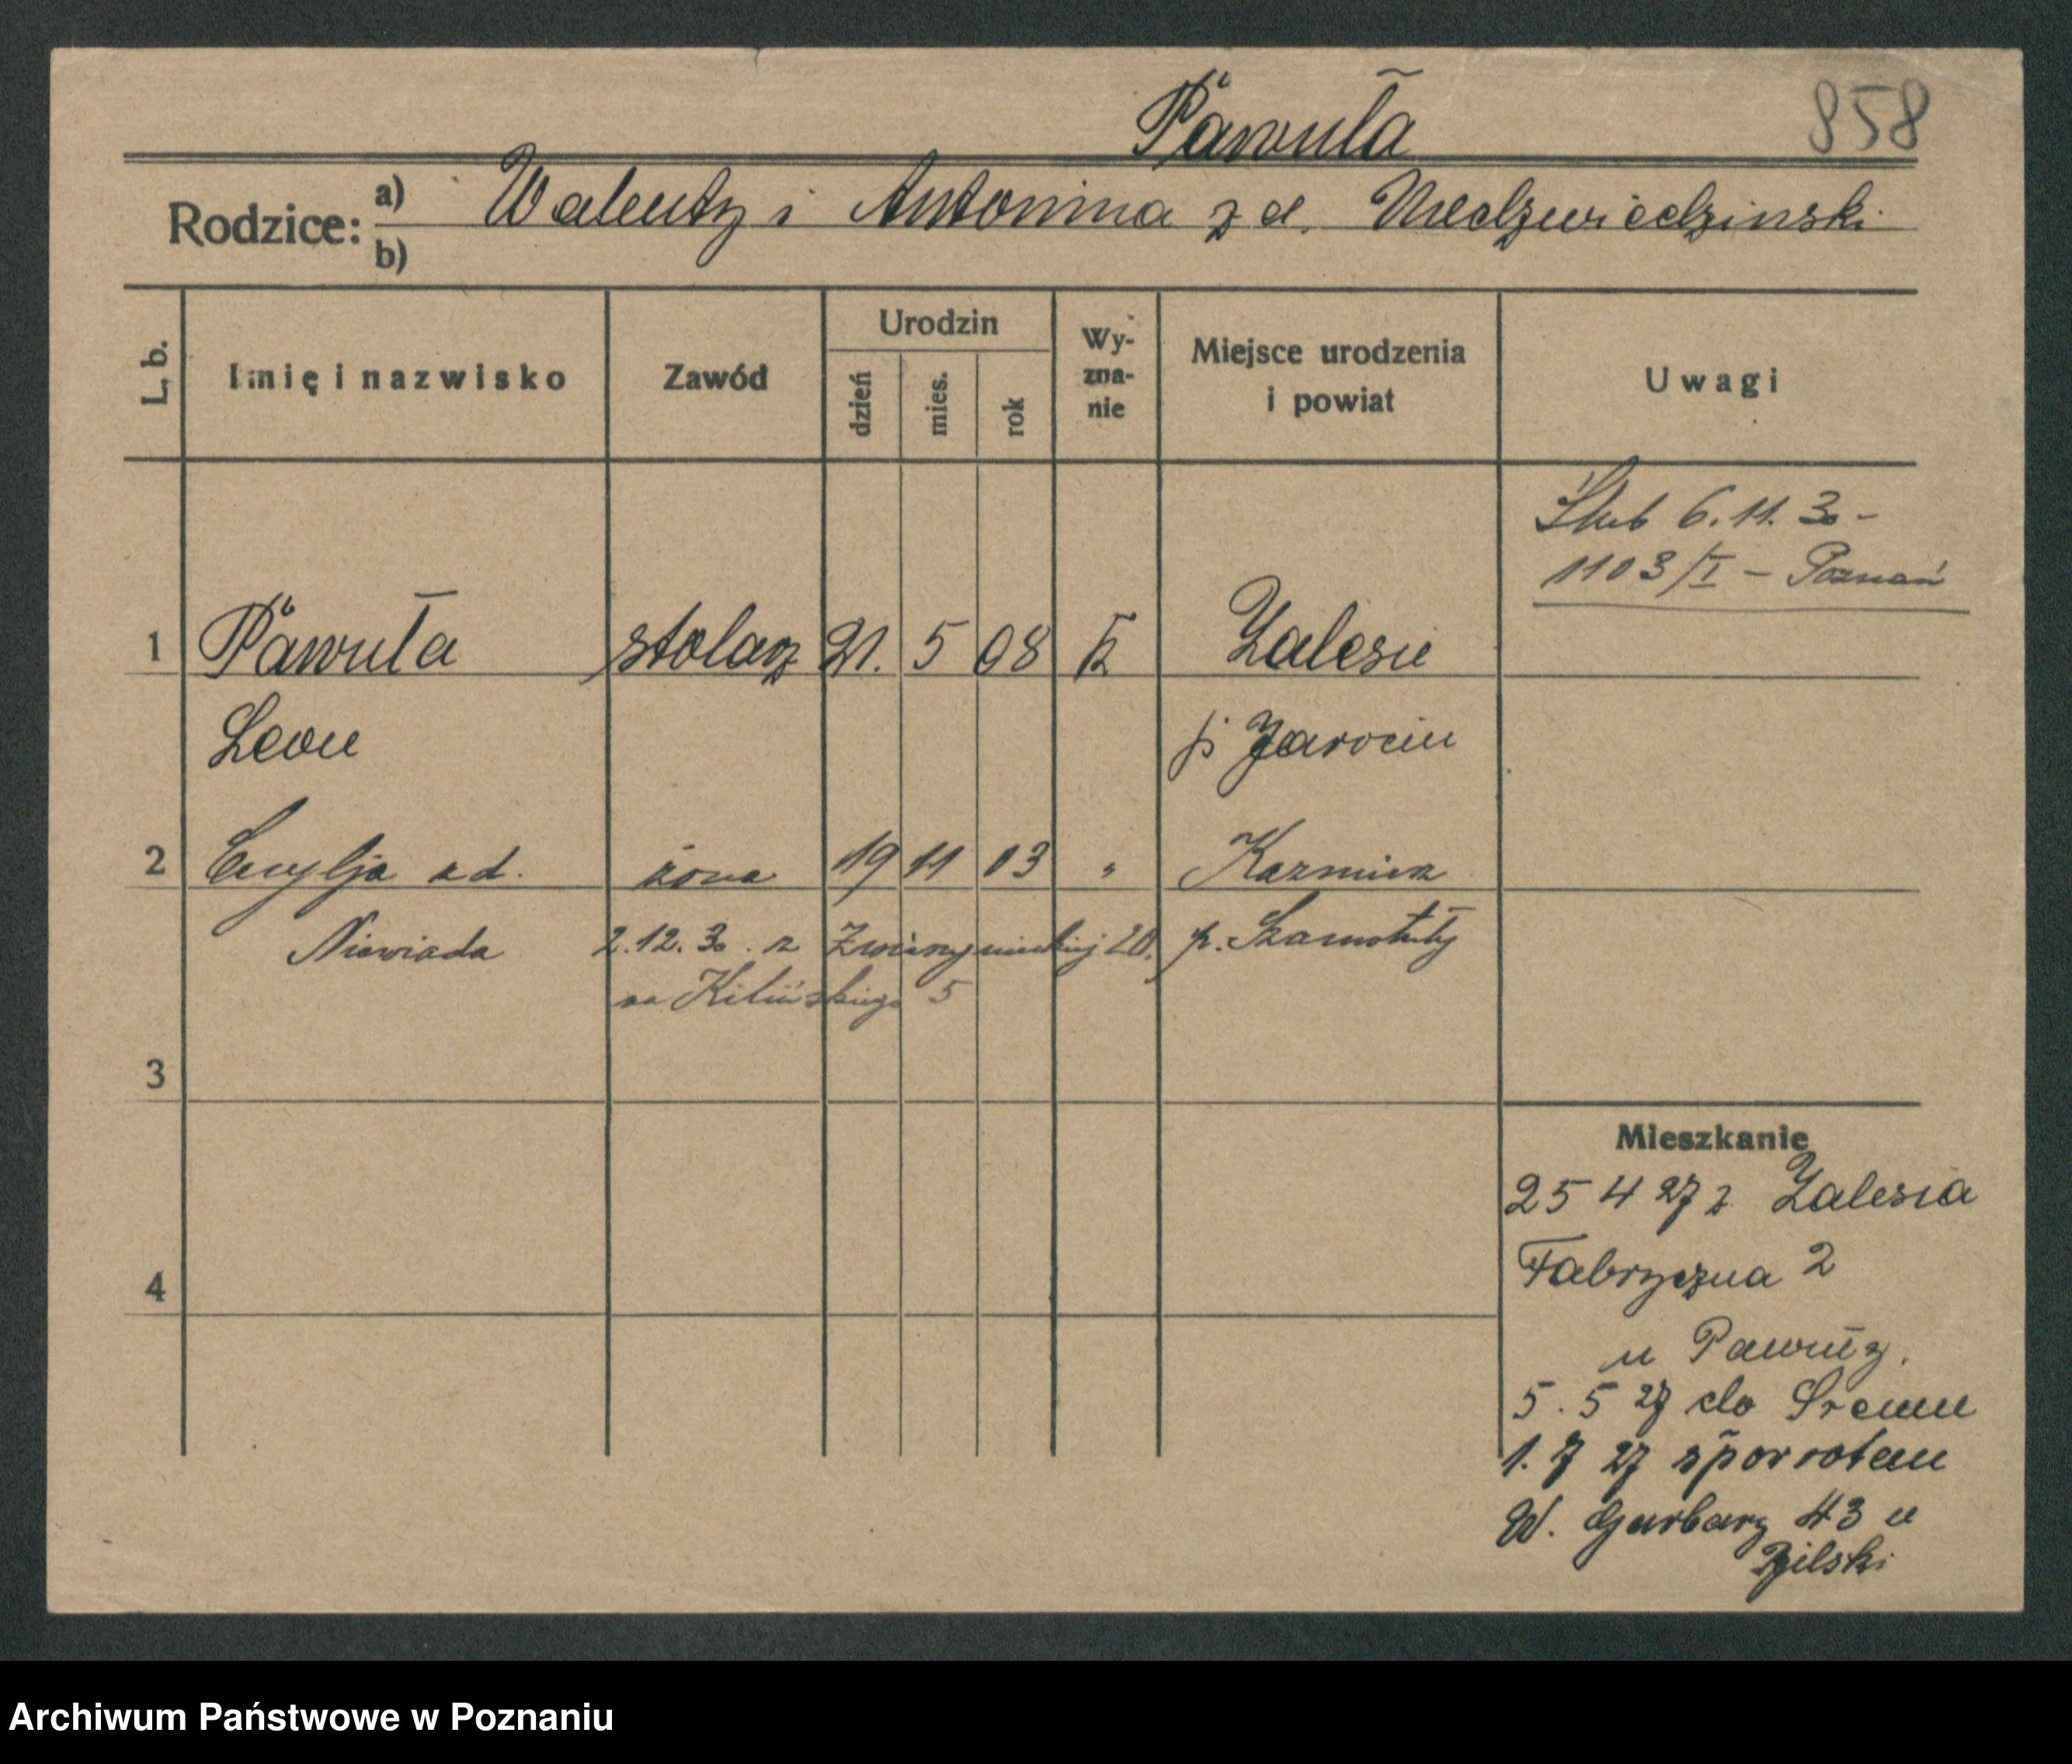 Pawuła
858
Rodzice: a) Walenty i Antonina z d. Niedzwiedzinski
b)
L. b.
Imię i nazwisko
Zawód
Urodzin
dzień
mies.
rok
Wy-
zna-
nie
Miejsce urodzenia
i powiat
Uwagi
Ślub 6. 11. 30 -
1103/I - Poznań
1 Pawuła stolarz 21. 5 08 k Zalesie
Leon p Jarocin
2 Emylja zd. żona 19 11 03 " Kazmierz
Niewiada 2.12.30. z Zwierzynieckiej 20. p. Szamotuły
na Kilińskiego 5
3
4
Mieszkanie
25 4 27 z Zalesia
Fabryczna 2
u Pawuły.
5. 5 27 do Sremu
1. 7 27 spowrotem
W. Garbary 43 u
Archiwum Państwowe w Poznaniu